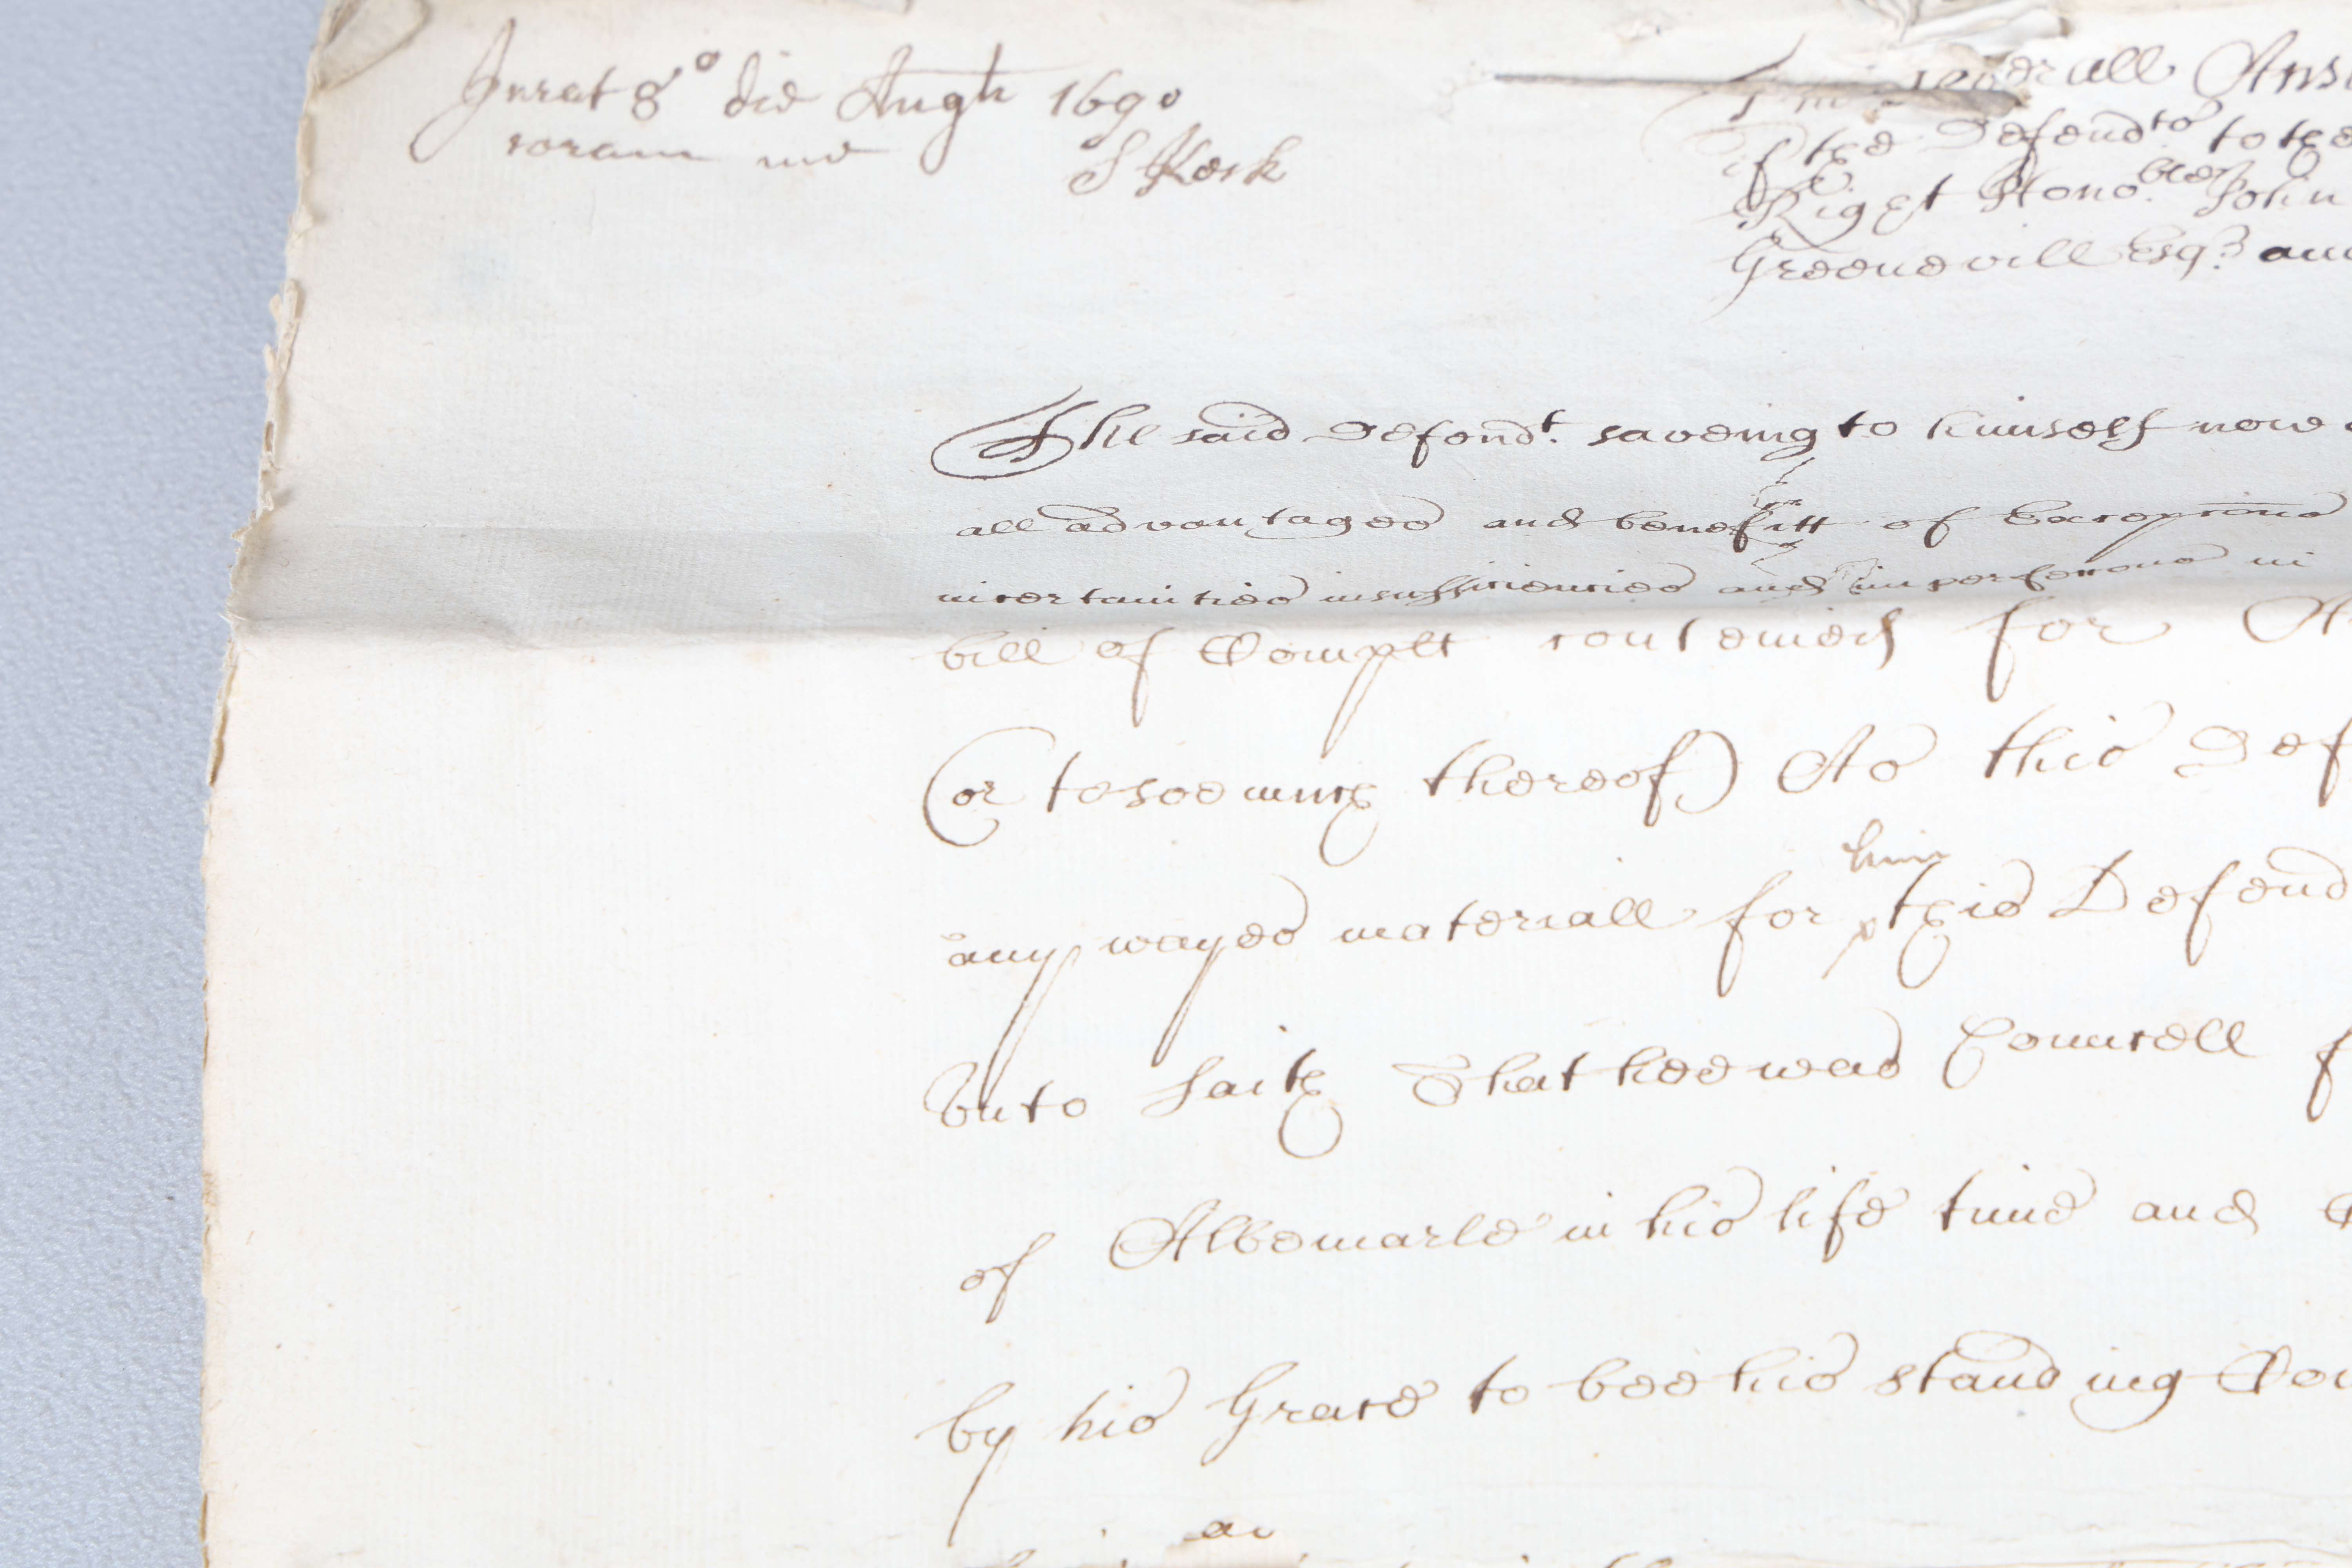 Jurat 8° die Augti 1690
coram me
S Keck
severall Ans
of the Defendts to the
Right Honoble John
Greenevill Esqr. an
The said Defendt. saveing to himself now
all advantages and benefitt of Excepcons
incertainties insufficiencies and imperfeccons in
bill of Complt conteined for A
(or to soe much thereof) As this Def
any wayes materiall for him this Defend
unto saith That hee was Councell f
of Albemarle in his life time and
by his Grace to bee his standing Cou